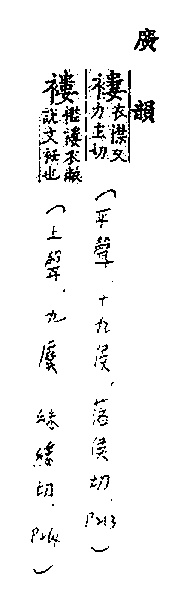 廣韻
褸衣襟又力主切
(平聲．十九侯．落侯切．P213)
褸襤褸衣敝說文衽也
(上聲．九麌 綠縷切．P264)